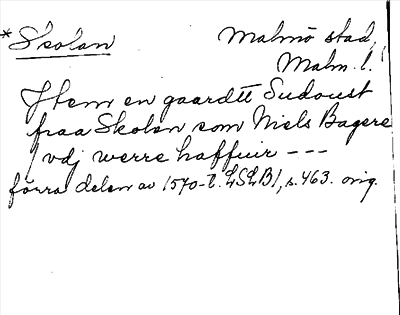 *Skolan Malmö stad,
Malm. l.
Jtem en gaardtt Sudoust
fraa Skolen som Niels Bagere
vdj werre haffuir ---
förra delen av 1570-t. LSLB1, s. 463. orig.